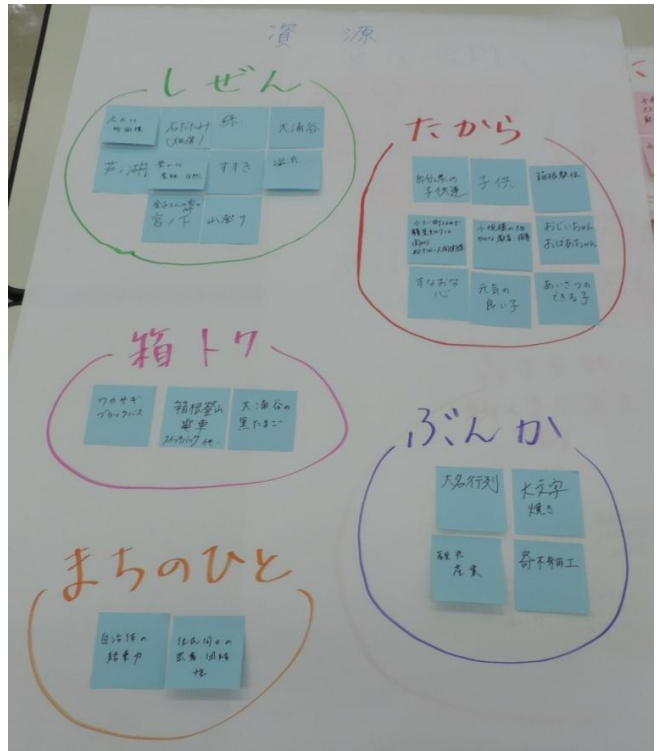 資源
しぜん
石だたみ
緑
大涌谷
芦ノ湖
すすき
温泉
宮ノ下
山登り
たから
子供達
子供
箱根駅伝
おじいちゃん
おばあちゃん
すなおな
心
元気の
良い子
あいさつの
できる子
箱トク
ワカサギ
ブラックバス
箱根登山
電車
スイッチバック
大涌谷の
黒たまご
ぶんか
大名行列
大文字
焼き
観光
産業
寄木細工
まちのひと
自治体の
結束力
住民同士の